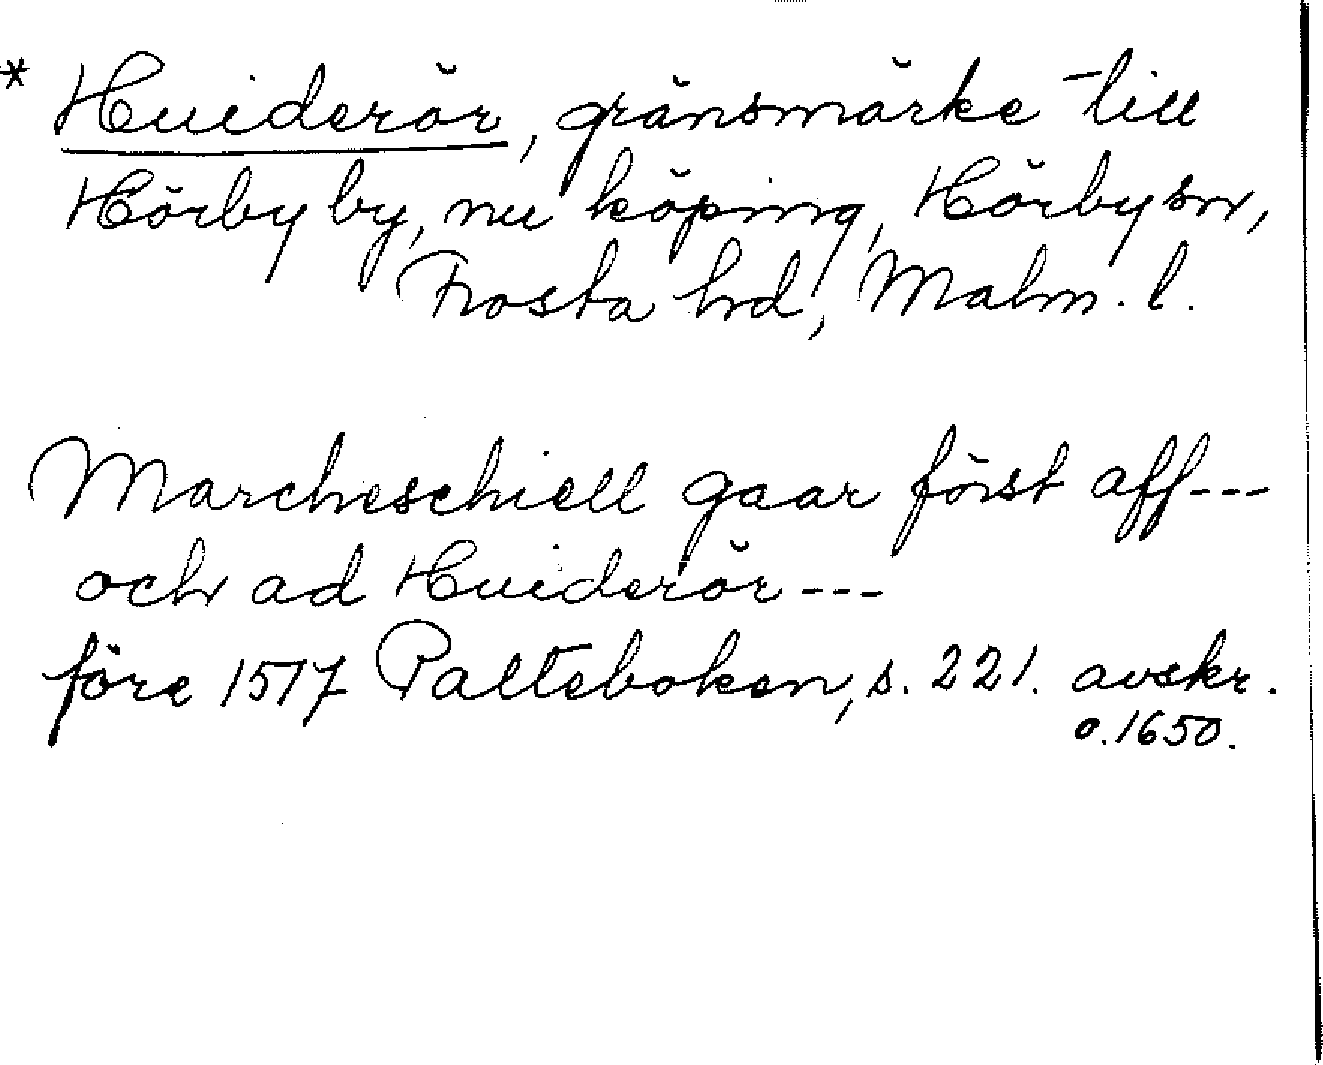 * Huiderör, gränsmärke till
Hörby by, nu köping, Hörby sn,
Frosta hd, Malm. l.
Marcheschiell gaar först aff---
och ad Huiderör---
före 1517 Palteboken, s. 221. avskr.
o. 1650.